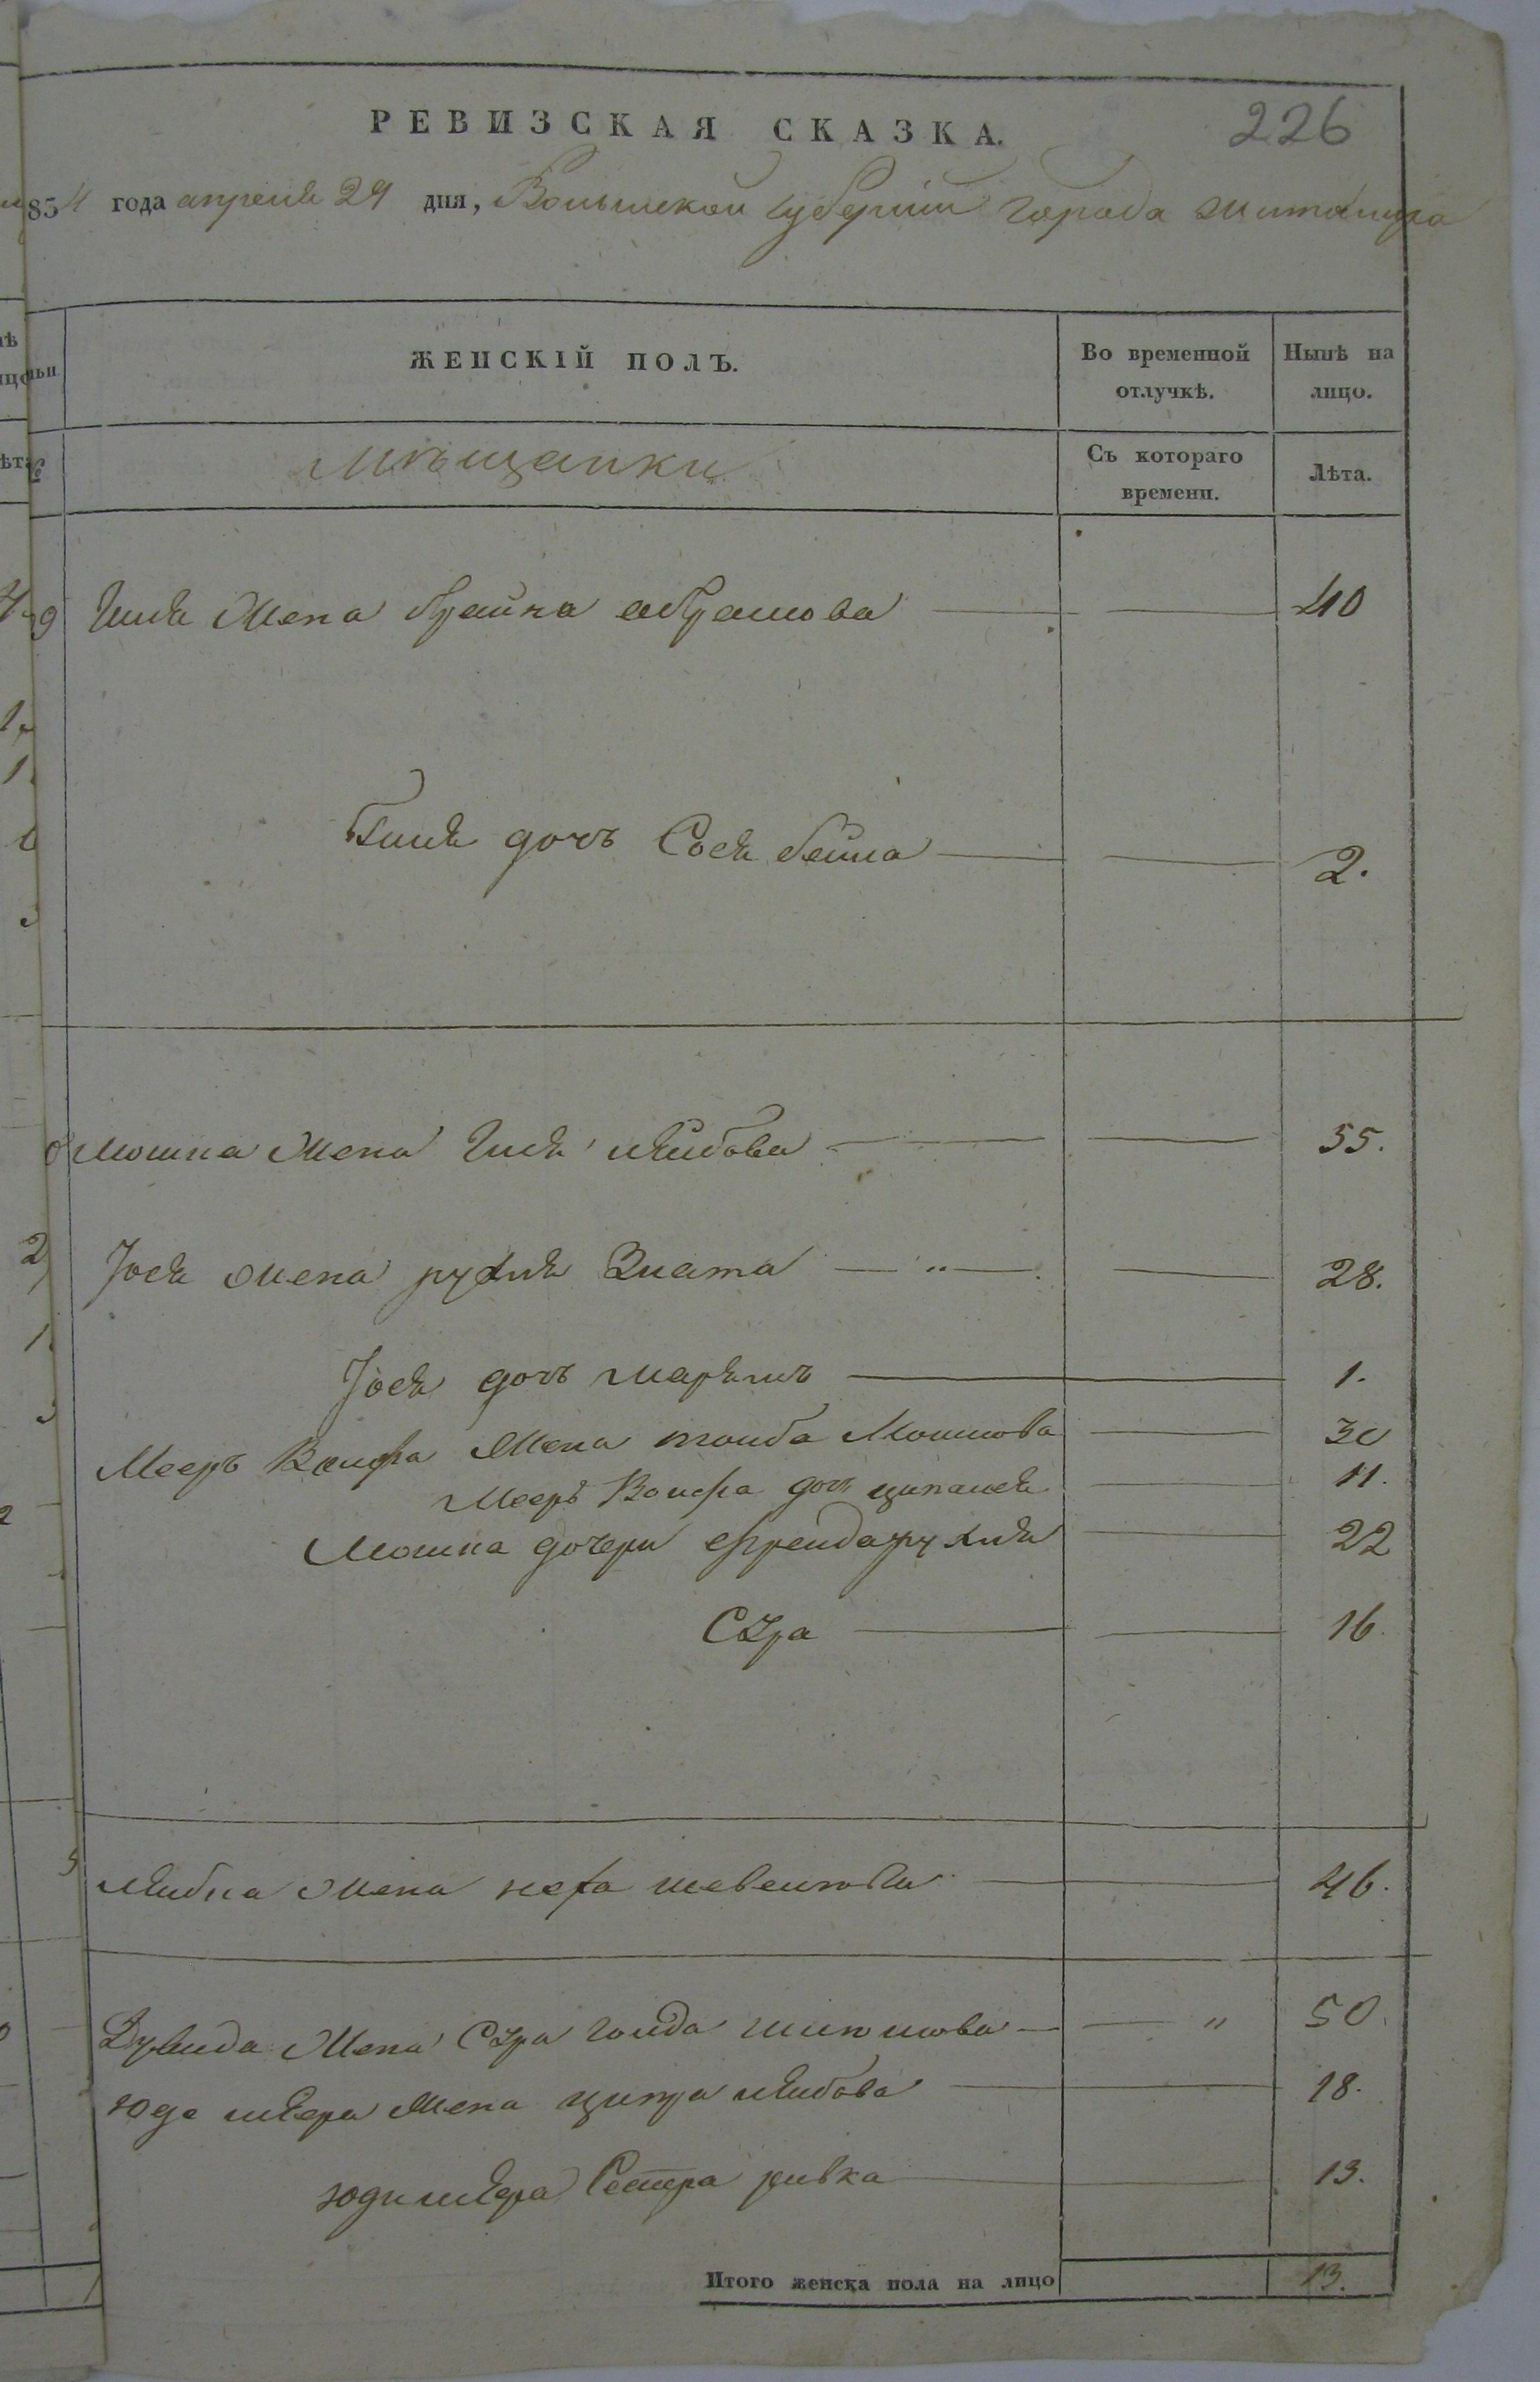 РЕВИЗСКАЯ СКАЗКА.
226
1854 года апреля 29 дня, Волынской губерніи города Житомира
ЖЕНСКІЙ ПОЛЪ.
Во временной отлучкѣ.
Нынѣ на лицо.
Мѣщанки
Съ котораго времени.
Лѣта.
жена брайна абрамова 40
дочь Сося бейла 2.
Мошка жена лейбова 55.
Іося жена рухля Злата " 28.
Іося дочь марьямъ 1.
Мееръ Вольфа жена тойба Мошкова 30
Мееръ Вольфа дочь ципася 11.
Мошка дочери фрейда рухля 22
Сура 16.
лейбка жена неха шевелева 46.
жена Сура голда шликмова " 50.
юде лейра жена ципра лейбова 18.
юди лейра Сестра ривка 13.
Итого женска пола на лицо 13.